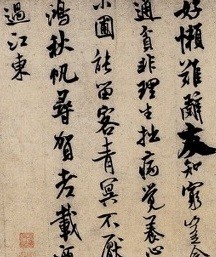 好懶難辭友知窮豈念
通貧非理生拙病覺養心
小圃能留客青冥不厭
鴻秋帆尋賀老載酒
過江東